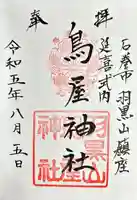 奉拝
石巻市 羽黒山鎮座
延喜式内
鳥屋神社
羽黒山
神社
令和五年八月五日